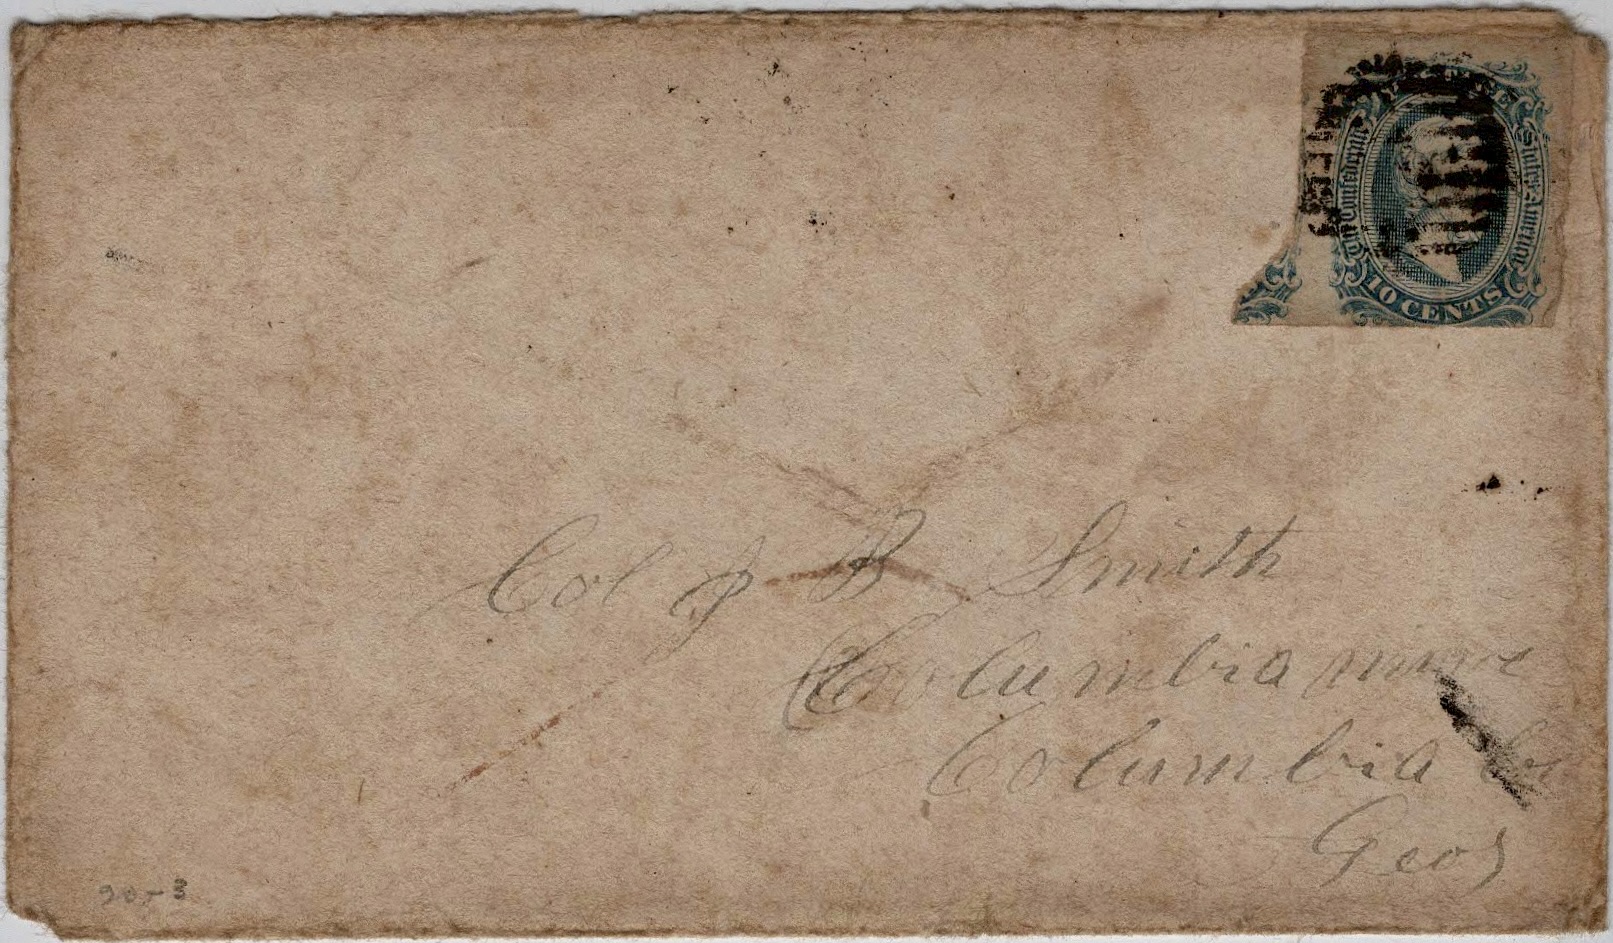 The Confederate States of America
10 CENTS
Col J B Smith
Columbia mine
Columbia Co
Geo
20-3